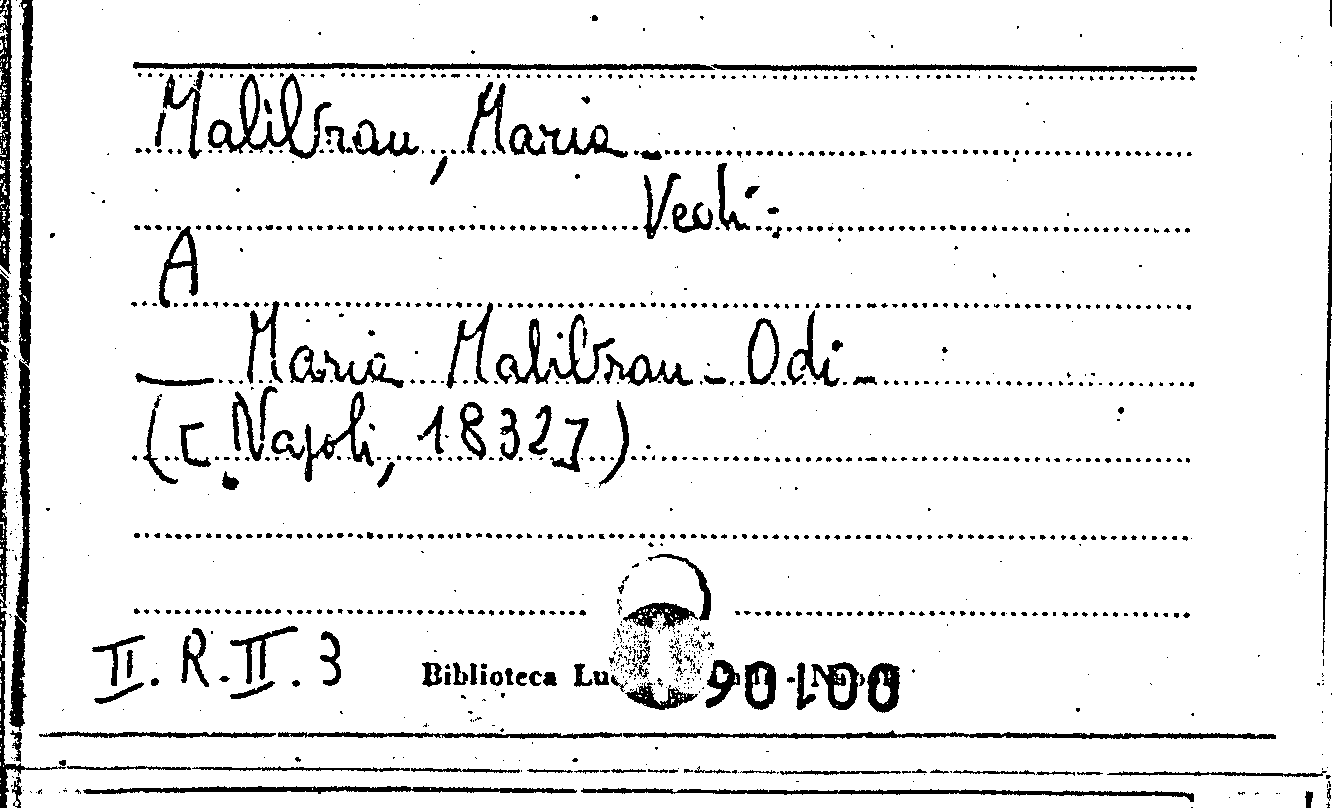 Malibran, Maria -
Vedi:
A
— Maria Malibran - Odi -
([Napoli, 1832])
II. R. II. 3
Biblioteca
00106